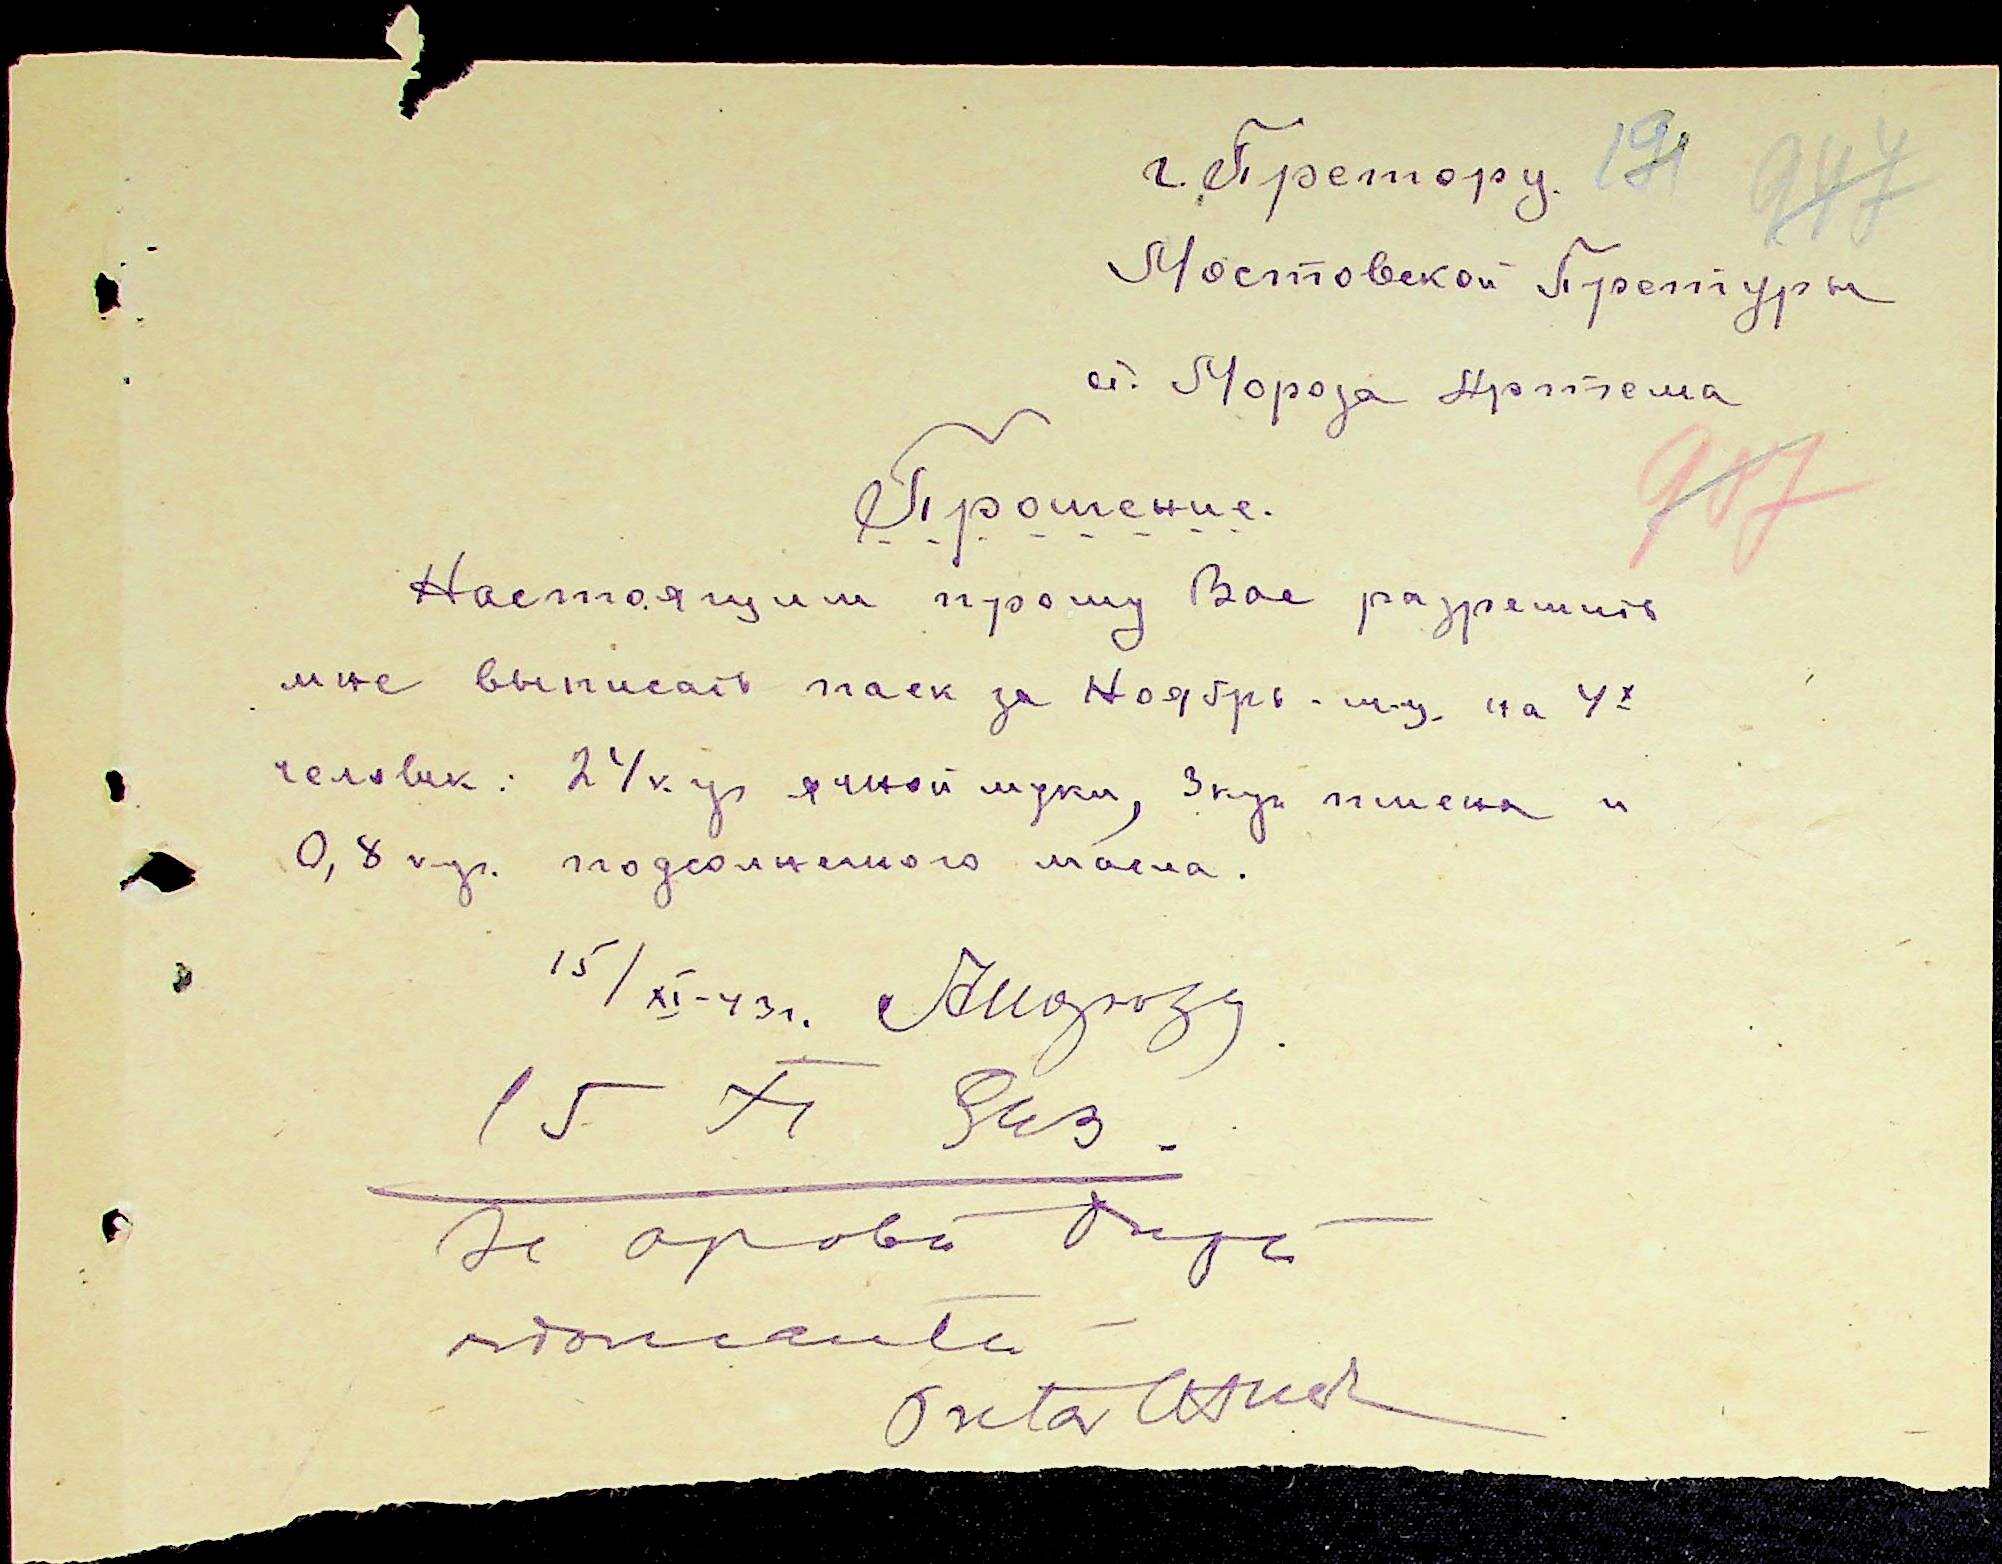 г. Претору. 191 947
Мостовской Претуры
от Мороза Артема
907
Прошение.
Настоящим прошу Вас разрешить
мне выписать паек за Ноябрь м-ц. на 4х
человек: 24 кгр ячной муки, 3 кгр. пшена и
0,8 кгр. подсолнечного масла.
15/XI-43г.
15 XI 943.
Se aprobă după